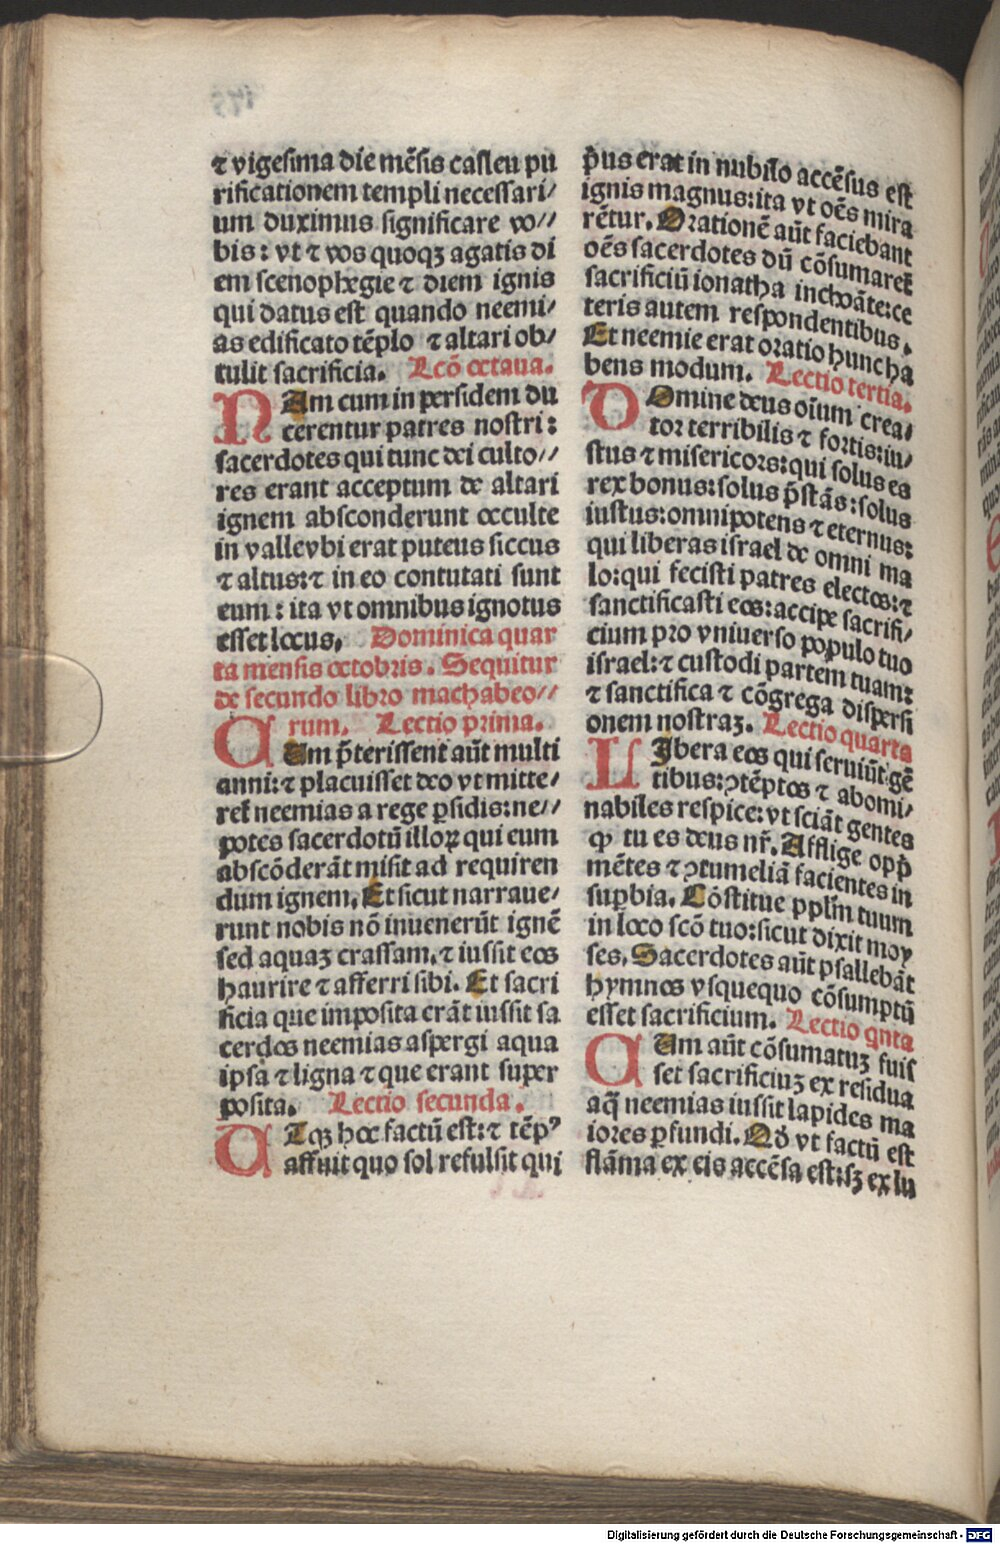 ⁊ vigesima die mēsis casleu pu
rificationem templi necessari/
um duximus significare vo//
bis: vt ⁊ vos quoqꝫ agatis di
em scenophegie ⁊ diem ignis
qui datus est quando neemi/
as edificato tēplo ⁊ altari ob/
tulit sacrificia. Lcō octaua.
NAm cum in persidem du
cerentur patres nostri:
sacerdotes qui tunc dei culto//
res erant acceptum de altari
ignem absconderunt occulte
in valle vbi erat puteus siccus
⁊ altus: ⁊ in eo contutati sunt
eum: ita vt omnibus ignotus
esset locus. Dominica quar
ta mensis octobris. Sequitur
de secundo libro machabeo//
rum. Lectio prima.
CUm p̄terissent aūt multi
anni: ⁊ placuisset deo vt mitte/
ret̄ neemias a rege ꝑsidis: ne//
potes sacerdotū illoꝝ qui eum
abscōderāt misit ad requiren
dum ignem. Et sicut narraue/
runt nobis nō inuenerūt ignē
sed aquaꝫ crassam. ⁊ iussit eos
haurire ⁊ afferri sibi. Et sacri
ficia que imposita erāt iussit sa
cerdos neemias aspergi aqua
ipsa ⁊ ligna ⁊ que erant super
posita. Lectio secunda.
UTqꝫ hoc factū est: ⁊ tēpꝰ
affuit quo sol refulsit qui
p̄us erat in nubilo accēsus est
ignis magnus: ita vt oēs mira
rētur. Orationē aūt faciebant
oēs sacerdotes dū cōsumaret̄
sacrificiū ionatha inchoāte: ce
teris autem respondentibus.
Et neemie erat oratio hunc ha
bens modum. Lectio tertia.
DOmine deus oīum crea/
tor terribilis ⁊ fortis: iu/
stus ⁊ misericors: qui solus es
rex bonus: solus p̄stās: solus
iustus: omnipotens ⁊ eternus:
qui liberas israel de omni ma
lo: qui fecisti patres electos: ⁊
sanctificasti eos: accipe sacrifi/
cium pro vniuerso populo tuo
israel: ⁊ custodi partem tuam:
⁊ sanctifica ⁊ cōgrega dispersi
onem nostraꝫ. Lectio quarta
LIbera eos qui seruiūt gē
tibus: ꝯtēptos ⁊ abomi/
nabiles respice: vt sciāt gentes
ꝙ tu es deus nr̄. Afflige opp̄
mētes ⁊ ꝯtumeliā facientes in
suꝑbia. Cōstitue pplm̄ tuum
in loco scō tuo: sicut dixit moy
ses. Sacerdotes aūt psallebāt
hymnos vsquequo cōsumptū
esset sacrificium. Lectio qnta
CUm aūt cōsumatuꝫ fuis
set sacrificiuꝫ ex residua
aq̄ neemias iussit lapides ma
iores ꝑfundi. Qd̄ vt factū est
flāma ex eis accēsa est: sꝫ ex lu